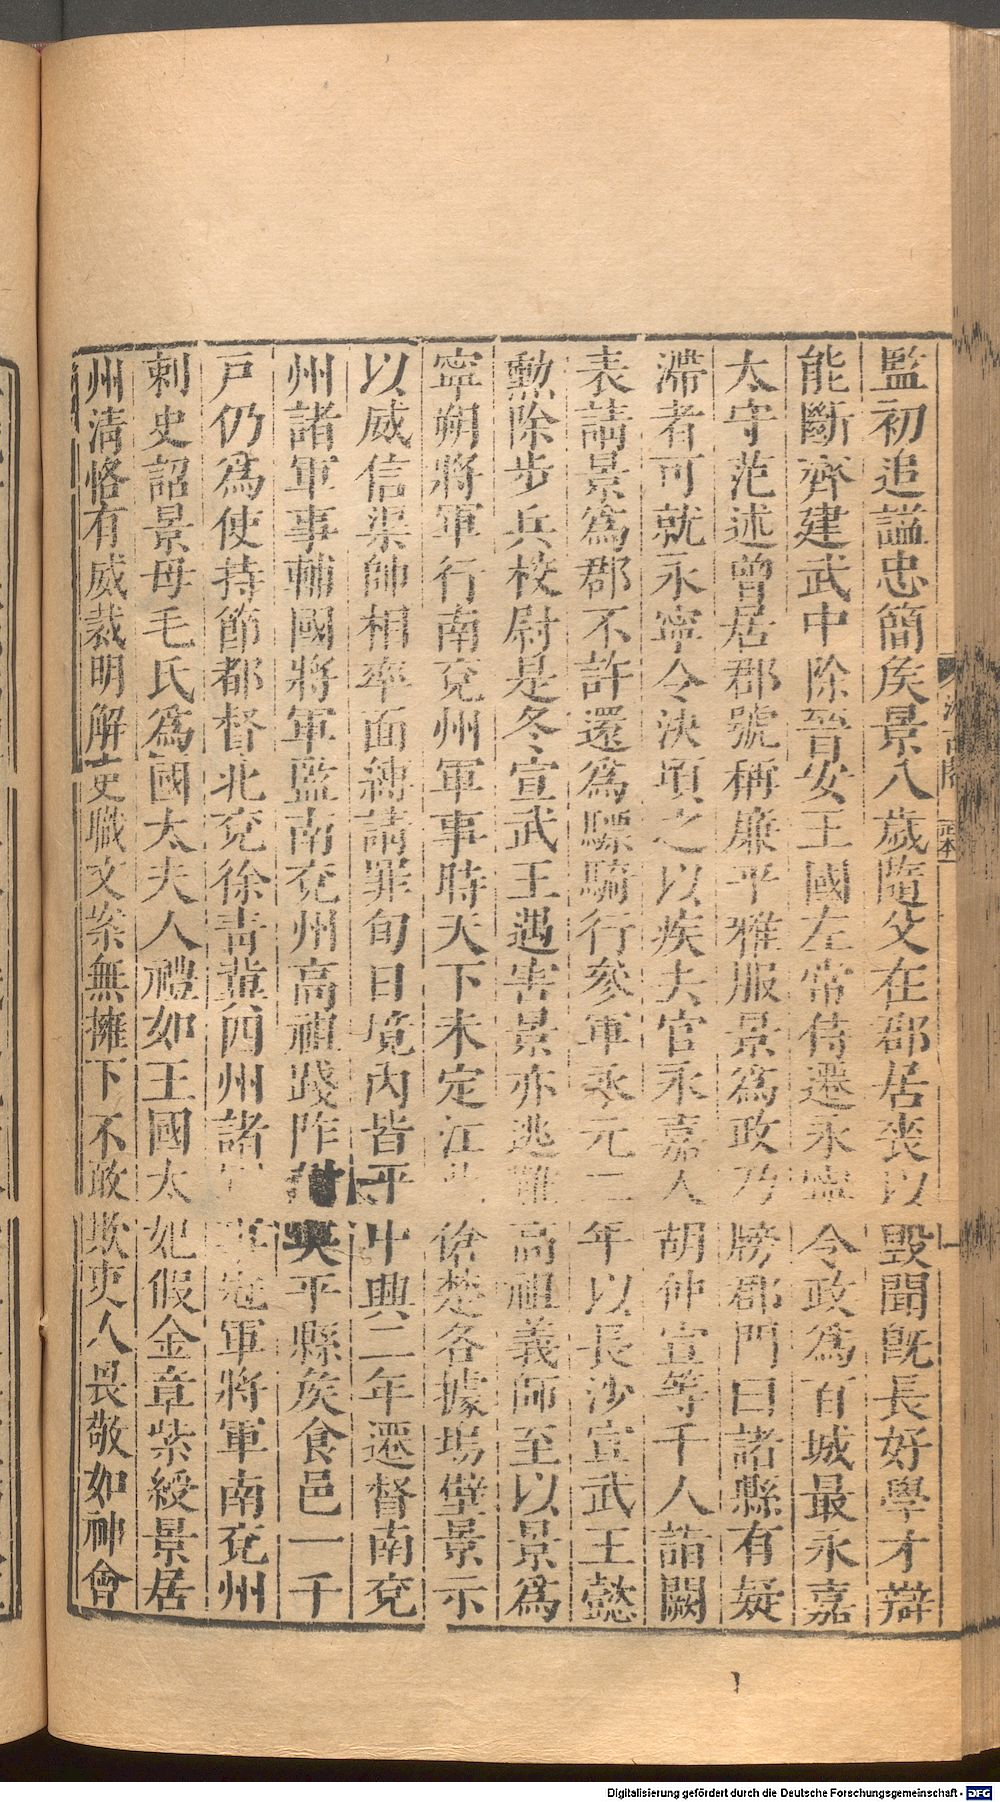 監初追謚忠簡矦景八歲隨父在郡居喪以毀聞旣長好學才辯
能斷齊建武中除晉安王國左常侍遷永寧令政爲百城最永嘉
太守范述曾居郡號稱廉平雅服景爲政乃牓郡門曰諸縣有疑
滯者可就永寧令決頃之以疾去官永嘉人胡仲宣等千人詣闕
表請景爲郡不許還爲驃騎行參軍永元二年以長沙宣武王懿
勳除步兵校尉是冬宣武王遇害景亦逃難高祖義師至以景爲
寧朔將軍行南兗州軍事時天下未定江北傖楚各據塢壁景示
以威信渠帥相率面縛請罪旬日境內皆平中興二年遷督南兗
州諸軍事輔國將軍監南兗州高祖踐阼封吳平縣矦食邑一千
戸仍爲使持節都督北兗徐靑冀四州諸軍事冠軍將軍南兗州
刺史詔景母毛氏爲國太夫人禮如王國太妃假金章紫綬景居
州清恪有威裁明解吏職文案無擁下不敢欺吏人畏敬如神會
正本
Digitalisierung gefördert durch die Deutsche Forschungsgemeinschaft - DFG